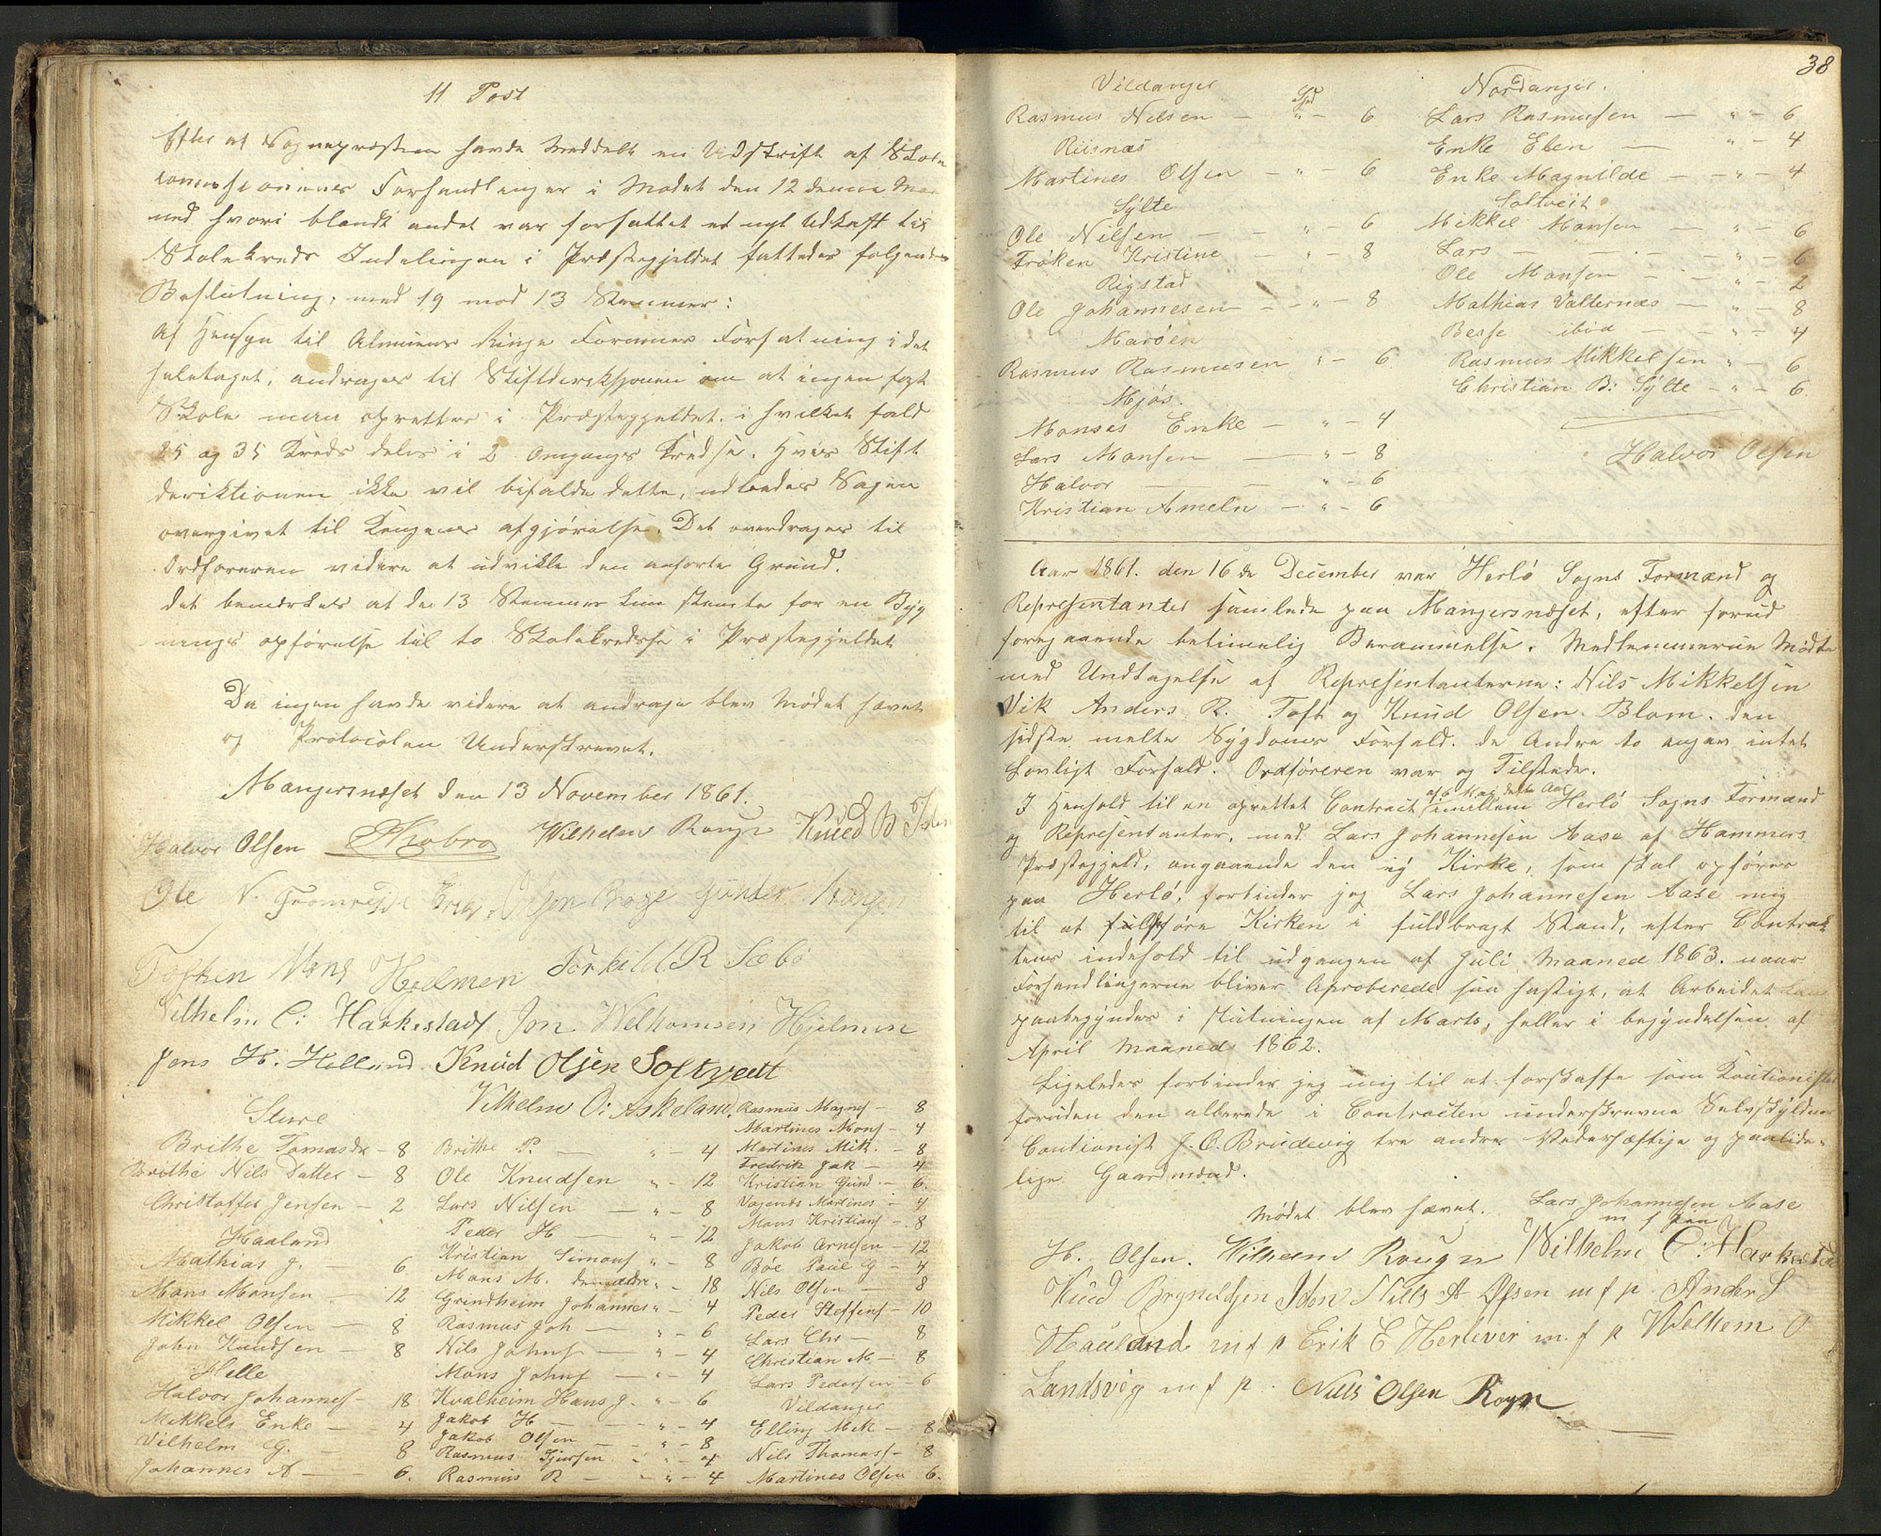 11 Post
Efter at Sognepræsten havde Meddelt en Udskrift af Skole
commisionenes Forhandlinger i Mødet den 12 denne Maa
ned hvori blandt andet var forfattet et nyt Udkast til
Skolekreds Indelingen i Præstegjeldet fattedes følgende
Beslutning, med 19 mod 13 Stemmer:
Af Hensyn til Almuens Ringe Formues Forfatning i det
heletaget, andrages til Stiftdireksjonen om at ingen fast
Skole maa oprettes i Præstegjeldet. i hvilket fald
25 og 35 Kreds deles i 2 Omgangs Kredse. Hvis Stift
deriktionen ikke vil bifalde dette, udbedes Sagen
overgivet til Kongens afgjørelse. Det overdrages til
Ordføreren videre at udvikle den anførte Grund.
det bemærkes at de 13 Stemmer kun stemte for en Byg
nings opførelse til to Skolekredse i Præstegjeldet
Da ingen havde videre at andrage blev Mødet hævet
og Protocolen Underskrevet.
Mangersnæset den 13 November 1861.
Halvor Olsen Wilhelm Rougn Knud B
Ole N. Olsen Gunder
Mons Hjelmen Torkild R Sæbø
Vilhelm C: Harkestad Jon Welhomsen Hjelmen
Jens H. Holland Knud Olsen Soltvedt
Vilhelm O: Askeland
Sture
Brithe Tomasdr - 8
Brithe Nils Datter - 8
Christoffer Jensen - 2
Haaland
Mathias J. 6
Mons Monsen - 12
Mikkel Olsen - 8
John Knudsen - 8
Helle
Halvor Johannes - 18
Mikkels Enke - 4
Vilhelm G. 8
Johannes A - 6.
Brithe P. — " - 4
Ole Knudsen " - 12
Lars Nilsen — " - 8
Peder H — " - 12
Kristian Simons " - 8
Mons M. " - 18
Grindheim Johannes " - 4
Rasmus Joh — " - 6
Nils Johns — " - 4
Mons Johns — " - 4
Kvalheim Hans J. " - 6
Jakob H — " - 4
Jakob Olsen — " - 8
Rasmus " - 4
Rasmus R — " - 4
Rasmus Magns - 8
Martines Mons - 4
Martines Mik. - 8
Fredrik Jak - 4
Kristian Gund. - 6.
Martines - 4
Mons Kristians - 8
Jakob Arnesen - 12
Bøe Paul G - 4
Nils Olsen - 8
Peder Steffens - 10
Lars Chr - 8
Christian M - 8
Lars Pedersen - 6
Vildanger
Elling Mik - 8
Nils Thomass - 8
Martines Olsen 6.
38
Vildanger
Spd
Rasmus Nilsen — " - 6
Riisnæs
Martines Olsen - " - 6
Sylte
Ole Nilsen — - " - 6
Frøken Kristine - " - 8
Rigstad
Ole Johannesen - " - 8
Marøen
Rasmus Rasmusen " - 6
Mjøs.
Monses Enke - " - 4
Lars Monsen — " - 8
Halvor — — " - 6
Kristian Ameln - " - 6
Nordanger.
Lars Rasmusen — " - 6
Enke Eben — " - 4
Enke Magnilde - " - 4
Soltveit
Mikkel Monsen — " - 6
Lars — — " - 6
Ole Monsen - " - 2
Mathias Valternæs - " - 8
Besse ibid — " - 4
Rasmus Mikkelsen " - 6
Christian B: Sylte - " - 6.
Halvor Olsen
Aar 1861. den 16de December var Herlø Sogns Formænd og
Repræsentanter samlede paa Mangersnæset, efter forud
foregaaende betimelig Berammelse. Medlemmerne Mødte
med Undtagelse af Repræsentanterne: Nils Mikkelsen
Vik Anders R. Toft og Knud Olsen Blom. den
sidste melte Sygdoms Forfald. de Andre to angav intet
Lovligt Forfald. Ordføreren var og Tilstede.
I Henhold til en oprettet Contract af 6 Mai dette Aar imellem Herlø Sogns Formænd
og Repræsentanter, med Lars Johannesen Aase af Hammers
Præstegjeld, angaaende den ny Kirke, som skal opføres
paa Herlø, forbinder jeg Lars Johannesen Aase mig
til at fuldføre Kirken i fuldbragt Stand, efter Contrak
tens indehold til udgangen af Juli Maaned 1863. naar
Forhandlingerne bliver Aproberede saa hastigt, at Arbeidet kan
paabegyndes i slutningen af Marts, heller i begyndelsen af
April Maaned 1862.
Ligeledes forbinder jeg mig til at forskaffe som Kautionister
foruden den allerede i Contracten underskrevne Selvskyldner
Cautionist J. C. Brudevig tre andre Vederhæftige og paalide-
lige Gaardmænd.
Mødet blev hævet. Lars Johannesen Aase
m f Pen
H. Olsen. Wilhelm Rougn Wilhelm C: Harkestad
Knud Brynildsen Iden Nills A Ofsen m f p. Anders
Hauland m f p Erik E Herlever m. f p Welhem O
Landsvig m f p. Nills Olsen Rogn